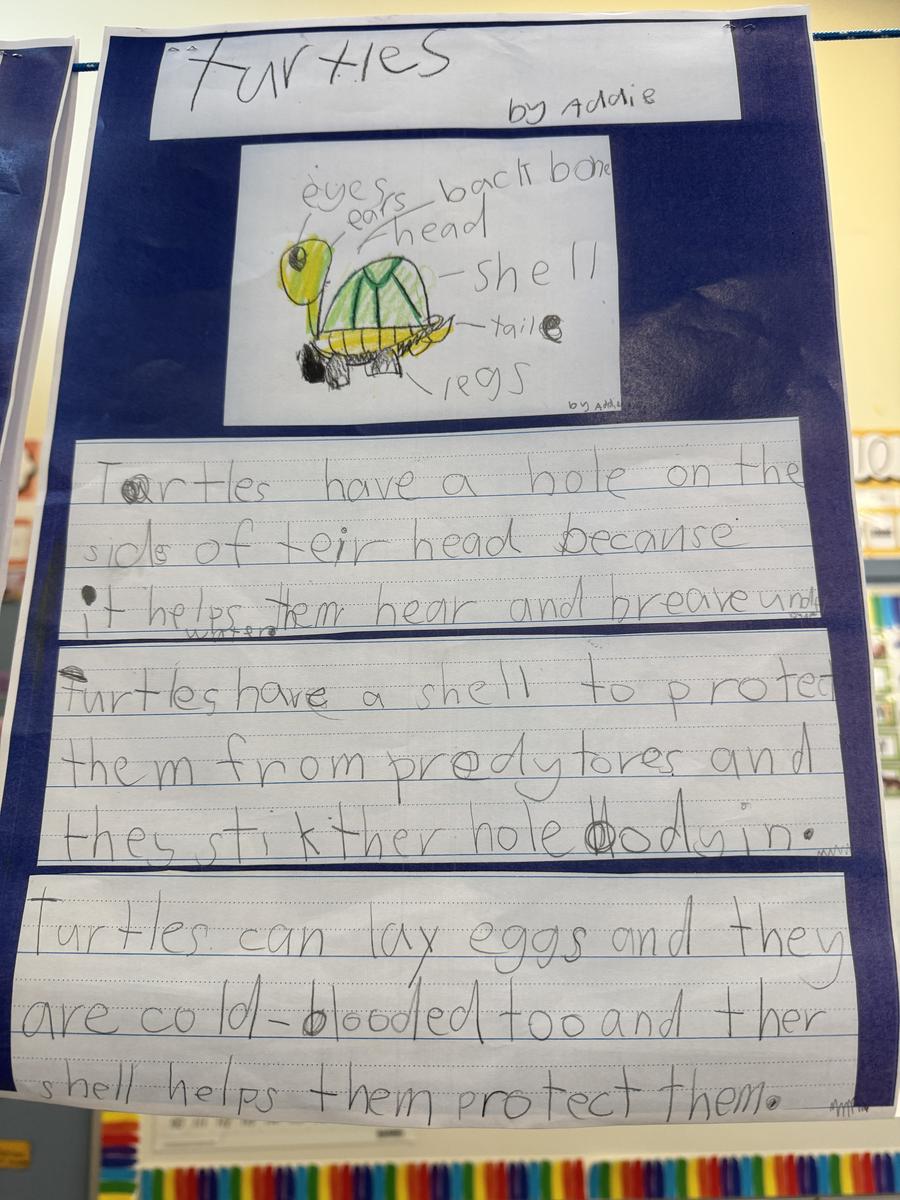 turtles
by Addie
eyes
ears
back bone
head
shell
tail
legs
by Addie
Turtles have a hole on the
side of teir head because
it helps them hear and breave under
water
turtles have a shell to protect
them from predytores and
they stik ther hole body in.
Turtles can lay eggs and they
are cold-blooded too and ther
shell helps them protect them.